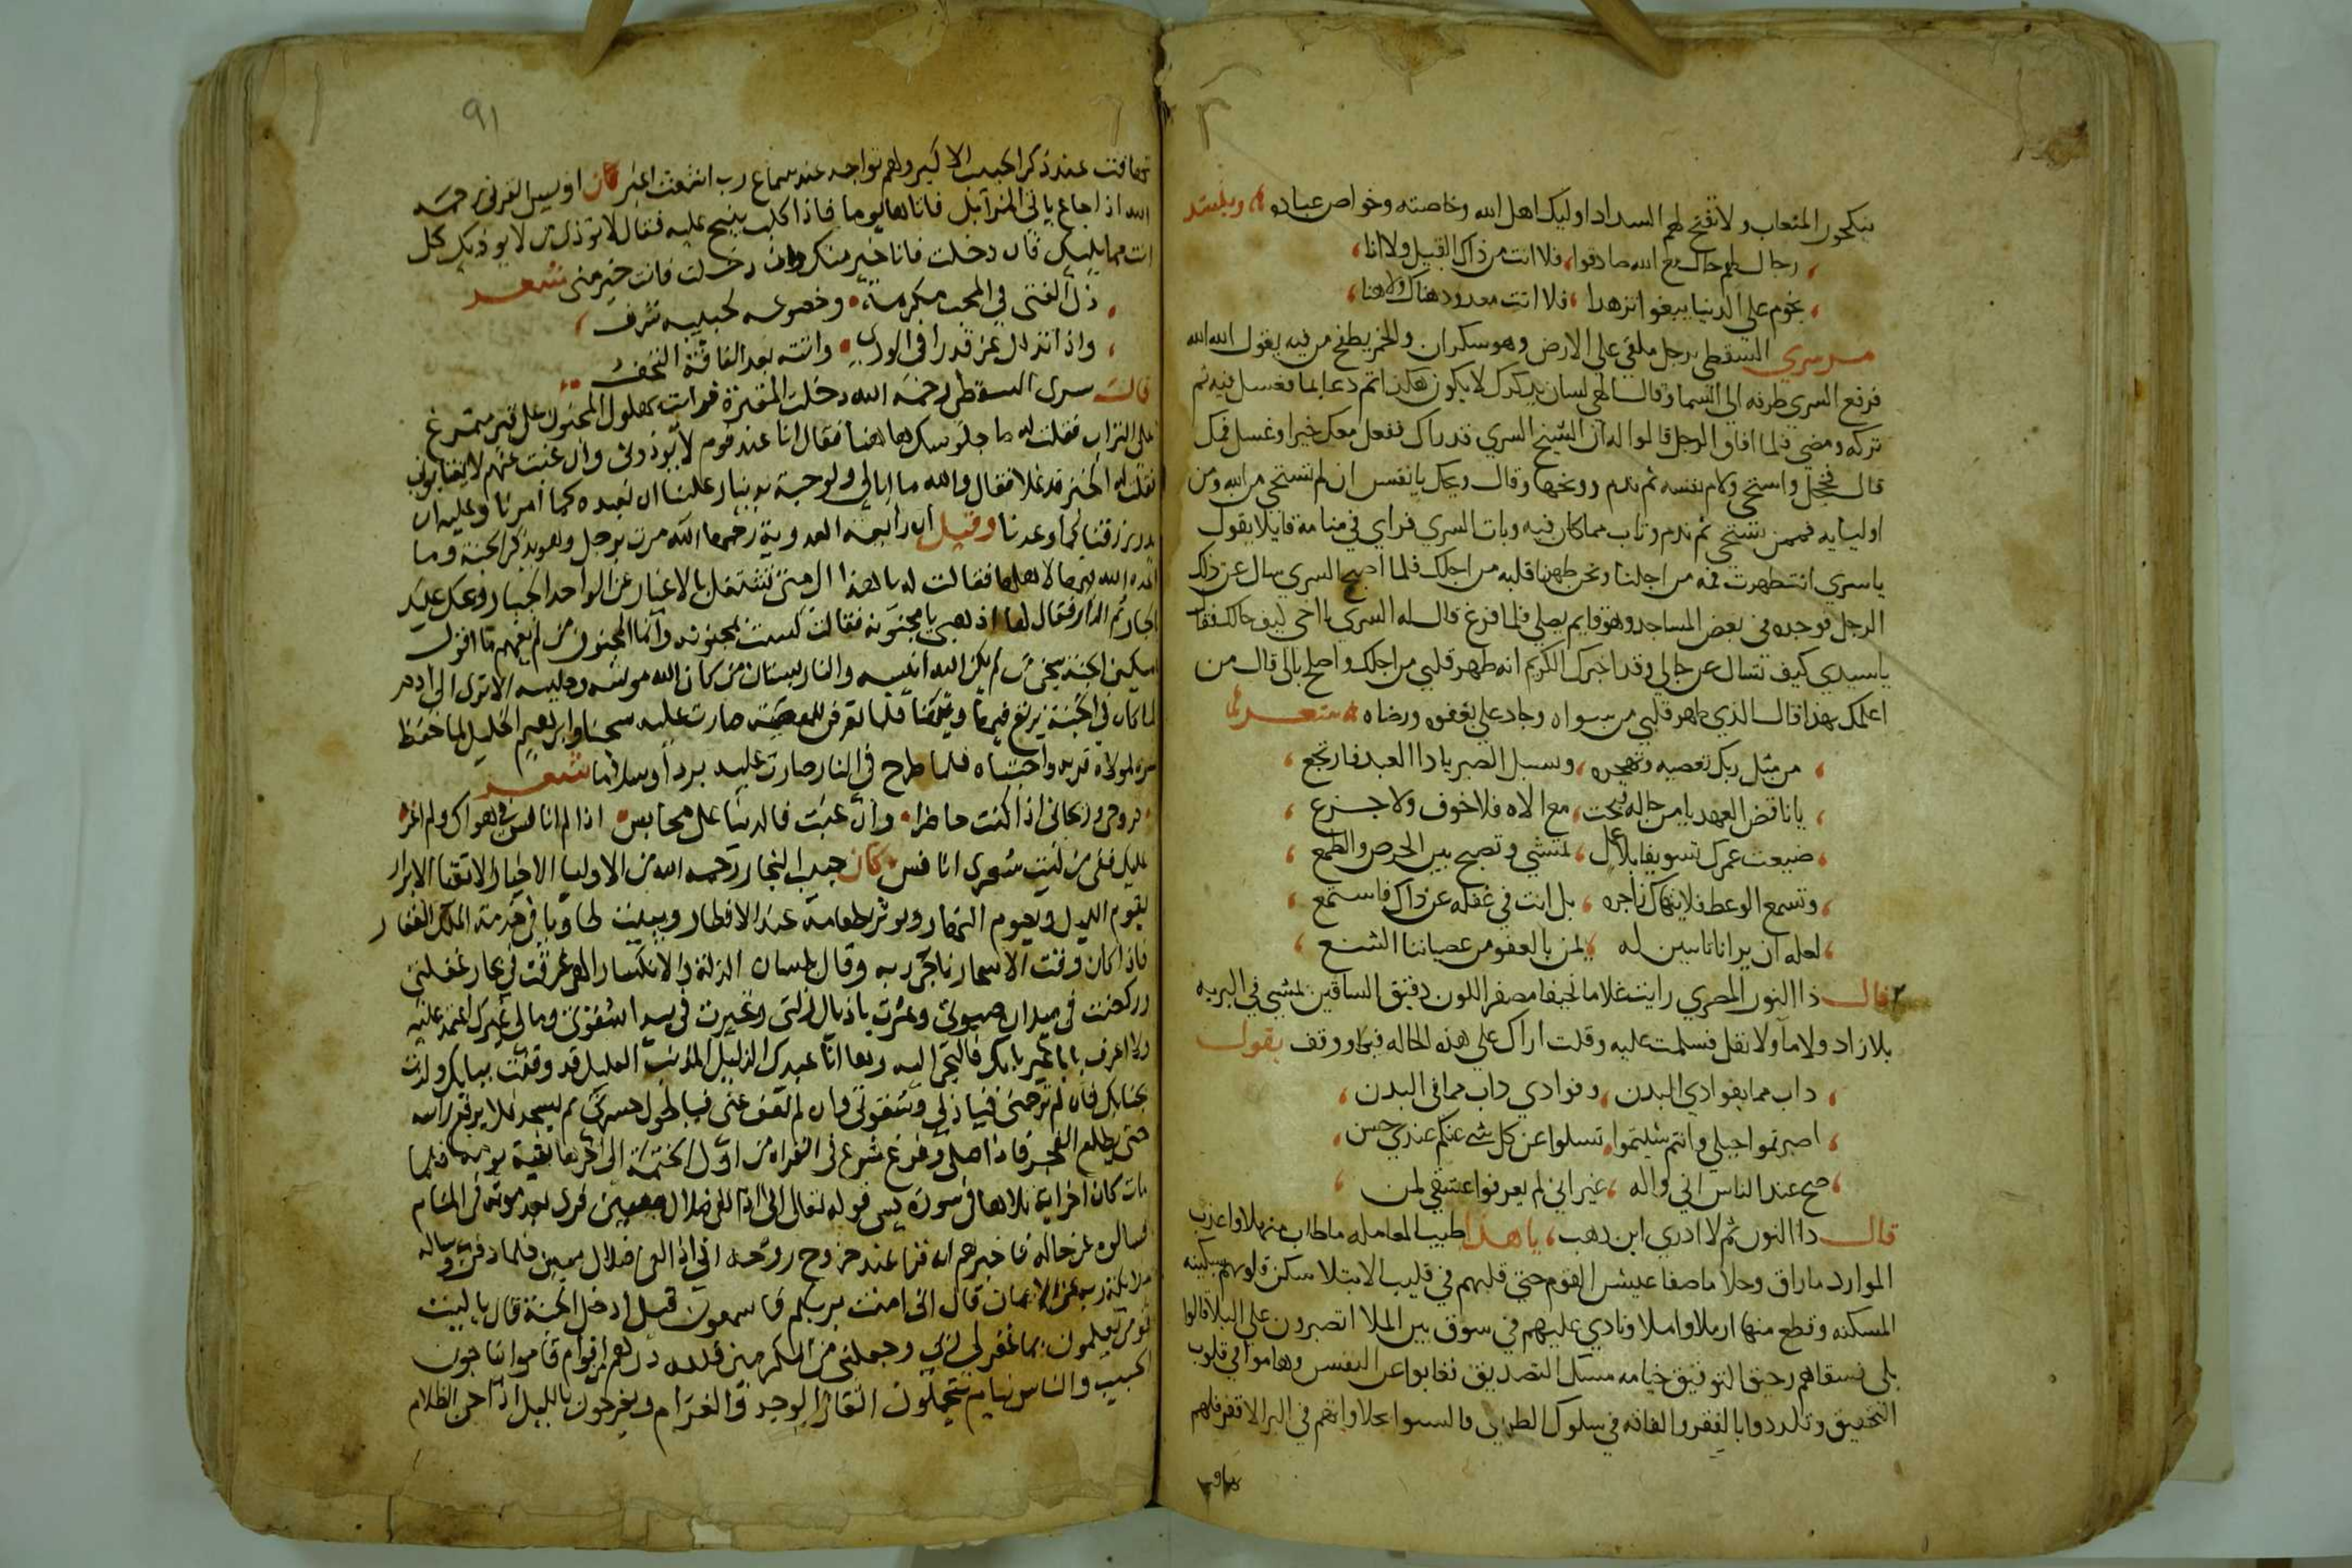 ينكحون المتعاب ولا تفتح لهم السدد اوليك اهل الله وخاصته وخواص عباده وينشد
رجال لهم حال مع الله صادقوا فلا انت من ذاك القبيل ولا انا
نجوم على الدنيا يبغوا تزهدا فلا انت معدود هناك ولا هنا
مر سري السقطي برجل ملقى علي الارض وهو سكران والخمر يطفح من فيه يقول الله الله
فرفع السري طرفه الي السما وقال الهي لسان يذكرك لا يكون هكذا ثم دعا بما فغسل فيه ثم
تركه ومضي فلما افاق الرجل قالوا له ان الشيخ السري قد راك ففعل معك خيرا وغسل فمك
قال فخجل واستحي ولام نفسه ثم ندم ووبخها وقال ويحك يا نفس ان لم تستحي من الله ومن
اوليايه فممن تستحي ثم ندم وتاب مما كان فيه وبات السري فراي في منامه قايلا يقول
يا سري انت طهرت فمه من اجلنا ونحن طهرنا قلبه من اجلك فلما اصبح السري سال عن ذلك
الرجل فوجده في بعض المساجد وهو قايم يصلي فلما فرغ قال له السري يا اخي كيف حالك فقال
يا سيدي كيف تسال عن حالي وقد اخبرك الكريم انه طهر قلبي من اجلك واصلح بالي قال من
اعلمك بهذا قال الذي طهر قلبي من سواه وجاد علي بعفوه ورضاه شعر
من مثل ربك تعصيه وتهجره وسبل الصبر يا ذا العبد فارتجع
يا ناقض العهد يا من حاله مع الاه فلا خوف ولا جزع
ضيعت عمرك تسويفا بلا عمل تمشي وتصبح بين الحرص والطمع
وتسمع الوعظ فلا ينهاك زاجره بل انت في غفله عن ذاك فاستمع
لعله ان يرانا تايبين له يمن بالعفو من عصياننا الشنع
قال ذا النون المصري رايت غلاما نحيفا مصفر اللون دقيق الساقين يمشي في البريه
بلا زاد ولا ما ولا نقل فسلمت عليه وقلت اراك علي هذه الحاله فبكا ووقف يقول
داب مما بفوادي البدن وفوادي داب مما في البدن
عن كل شي عنكم عندي حسن
صح عند الناس اني واله غير اني لم يعرفوا عشقي لمن
قال ذا النون ثم لا ادري اين ذهب يا هذا طيب المعامله ما طاب منهلا واعذب
الموارد ما راق وحلا ما صفا عيش القوم حتي قلبهم في قليب الابتلا سكن قلوبهم بسكينه
المسكنه وقطع منها املا ونادي عليهم في سوق بين الملا اتصبرون علي البلا قالوا
بلي فسقاهم رحيق التوفيق ختامه مسك التصديق فغابوا عن النفس وهاموا في قلوب
التحقيق وتلذذوا بالفقر والفاقه في سلوك الطريق
٩١
تهافت عند ذكر الحبيب الاكبر ولهم تواجد عند سماع رب اشعث اغبر كان اويس القرني رحمه
الله اذا جاع ياتي المزابل فاتاها يوما فاذا كلب ينبح عليه فقال لا توذي من لا يوذيك كل
انت مما يليك فان دخلت فانا خير منك وان دخلت فانت خير مني شعر
ذل الفتي في الحب مكرمة وخضوعه لحبيبه شرف
واذا تذلل عز قدرا في الوري واتته بعد الفاقة التحف
قال سري السقطي رحمه الله دخلت المقبرة فرايت بهلول المجنون على قبر متمرغ
على التراب فقلت له ما جلوسك هاهنا فقال انا عند قوم لا يوذوني وان غبت عنهم لا يغتابوني
فقلت له الخبز قد غلا فقال والله ما ابالي ولو حبة بدينار علينا ان نعبده كما امرنا وعليه ان
يرزقنا كما وعدنا وقيل ان رابعة العدوية رحمها الله مرت برجل وهو يذكر الجنة وما
اعد الله فيها لاهلها فقالت له يا هذا الى متى تشتغل بالاغيار عن الواحد الجبار ويحك عليك
بالجار ثم الدار فقال لها اذهبي يا مجنونة فقالت لست بمجنونة وانما المجنون من لم يفهم ما اقول
يا مسكين الجنة سجن من لم يكن الله انيسه والنار بستان من كان الله مونسه وجليسه الا ترى الى ادم
لما كان في الجنة يرتع فيها فلما تعرض للمعصية صارت عليه سجنا وابراهيم الخليل لما حفظ
سره لمولاه قربه واجتباه فلما طرح في النار صارت عليه بردا وسلاما شعر
روحي وريحاني اذا كنت حاضرا وان غبت فالدنيا علي محابس اذا لم انافس في هواك ولم اغر
عليك فلى من ليت شعري انافس كان حبيب النجار رحمه الله من الاوليا الاخيار الاتقيا الابرار
يقوم الليل ويصوم النهار ويوثر بطعامه عند الافطار ويبيت طاويا في خدمة الملك الغفار
فاذا كان وقت الاسحار ناجي ربه وقال بلسان الذلة والانكسار الهي غرقت في بحار غفلتي
وركضت في ميدان صبوتي وعثرت باذيال زلتي وتحيرت في بيدا شقوتي وما لي غيرك اعتمد عليه
ولا اعرف بابا غير بابك فالتجي اليه وها انا عبدك الذليل المذنب العليل قد وقفت ببابك ولذت
بجنابك فان لم ترحمني فيا ذلي وشقوتي وان لم تعف عني فيا طول حسرتي ثم يسجد فلا يرفع راسه
حتى يطلع الفجر فاذا صلى وفرغ شرع في القراة من اول الختمة الى اخرها بقية يومه فلما
مات كان اخر اية تلاها في سورة يس قوله تعالى اني اذا لفي ضلال مبين فري بعد موته في المنام
فسالوه عن حاله فاخبرهم انه قرا عند خروج روحه اني اذا لفي ضلال مبين فلما دفن وساله
ملايكة ربه عن الايمان قال اني امنت بربكم فاسمعون قيل ادخل الجنة قال يا ليت
قومي يعلمون بما غفر لي ربي وجعلني من المكرمين فلله در اقوام قاموا يناجون
الحبيب والناس نيام يتحملون اثقال الوجد والغرام ويفرحون بالليل اذا جن الظلام